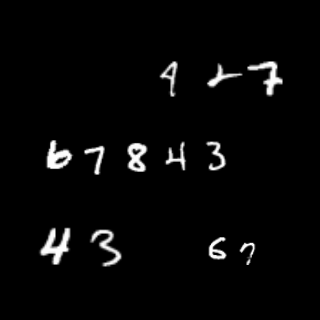 4 7
6 7 8 4 3
4 3 6 7